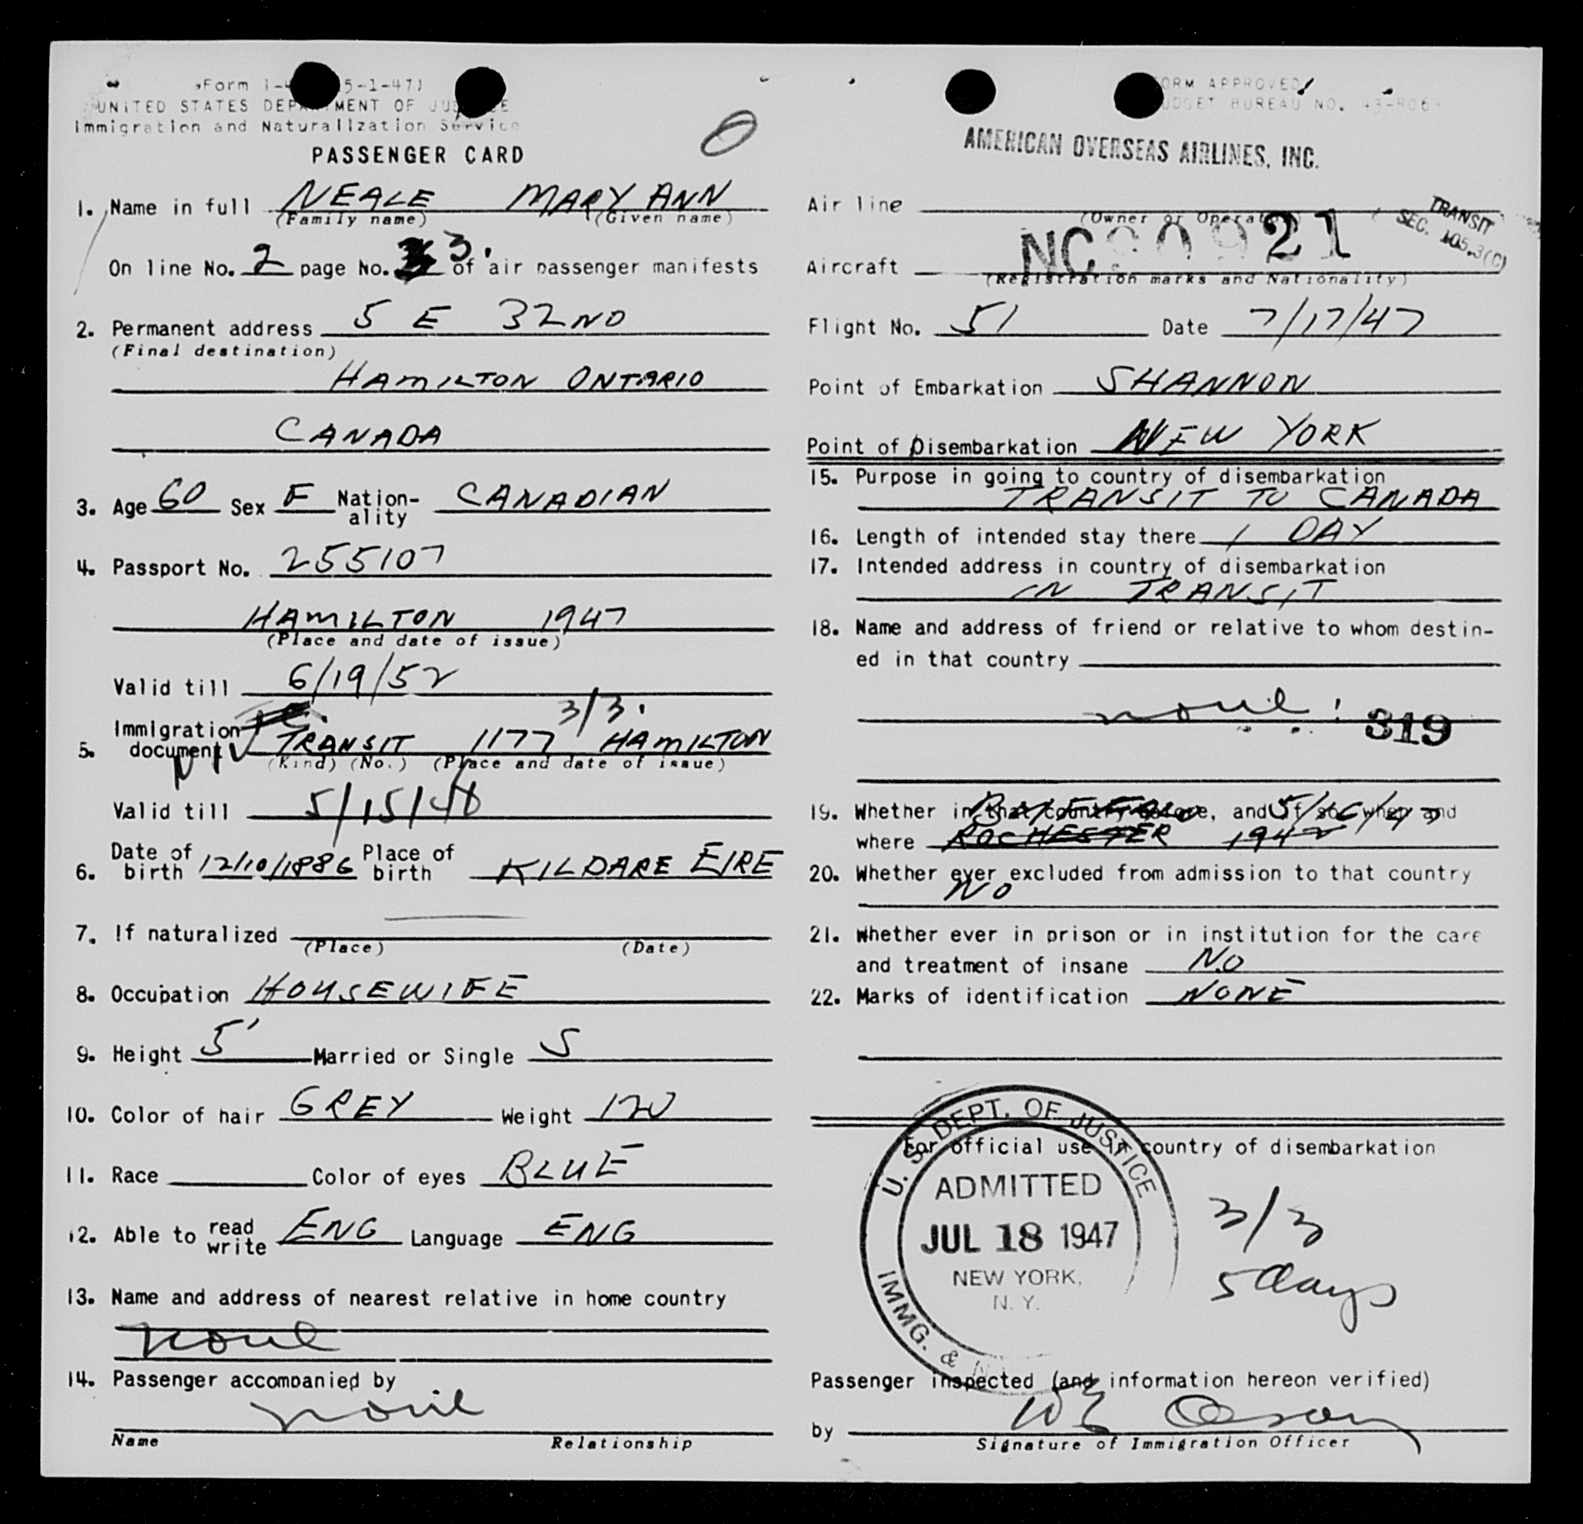 UNITED STATES DEPARTMENT OF JUSTICE
Immigration and Naturalization Service
PASSENGER CARD
1. Name in full NEALE MARY ANN
(Family name) (Given name)
On line No. 2 page No. 3. of air passenger manifests
2. Permanent address 5 E 32ND
(Final destination)
HAMILTON ONTARIO
CANADA
3. Age 60 Sex F Nation-ality CANADIAN
4. Passport No. 255107
HAMILTON 1947
(Place and date of issue)
Valid till 6/19/52
3/3.
5. Immigration document TRANSIT 1177 HAMILTON
(Kind) (No.) (Place and date of issue)
Valid till 5/15/48
6. Date of birth 12/10/1886 Place of birth KILDARE EIRE
7. If naturalized
(Place) (Date)
8. Occupation HOUSEWIFE
9. Height 5' Married or Single S
10. Color of hair GREY Weight 120
11. Race Color of eyes BLUE
12. Able to read write ENG Language ENG
13. Name and address of nearest relative in home country
none
14. Passenger accompanied by
none
Name Relationship
FORM APPROVED
BUDGET BUREAU NO.
AMERICAN OVERSEAS AIRLINES, INC.
Air line
(Owner or Operator)
TRANSIT
SEC. 105.3(C)
Aircraft NC90921
(Registration marks and Nationality)
Flight No. 51 Date 7/17/47
Point of Embarkation SHANNON
Point of Disembarkation NEW YORK
15. Purpose in going to country of disembarkation
TRANSIT TO CANADA
16. Length of intended stay there 1 DAY
17. Intended address in country of disembarkation
IN TRANSIT
18. Name and address of friend or relative to whom destin-
ed in that country
none
319
19. Whether in that country before, and if so, when and
where ROCHESTER 1942
20. Whether ever excluded from admission to that country
NO
21. Whether ever in prison or in institution for the care
and treatment of insane NO
22. Marks of identification NONE
For official use in country of disembarkation
U. S. DEPT. OF JUSTICE
ADMITTED
JUL 18 1947
NEW YORK,
N. Y.
IMMG. &
3/3
5 days
Passenger inspected (and information hereon verified)
by
Signature of Immigration Officer